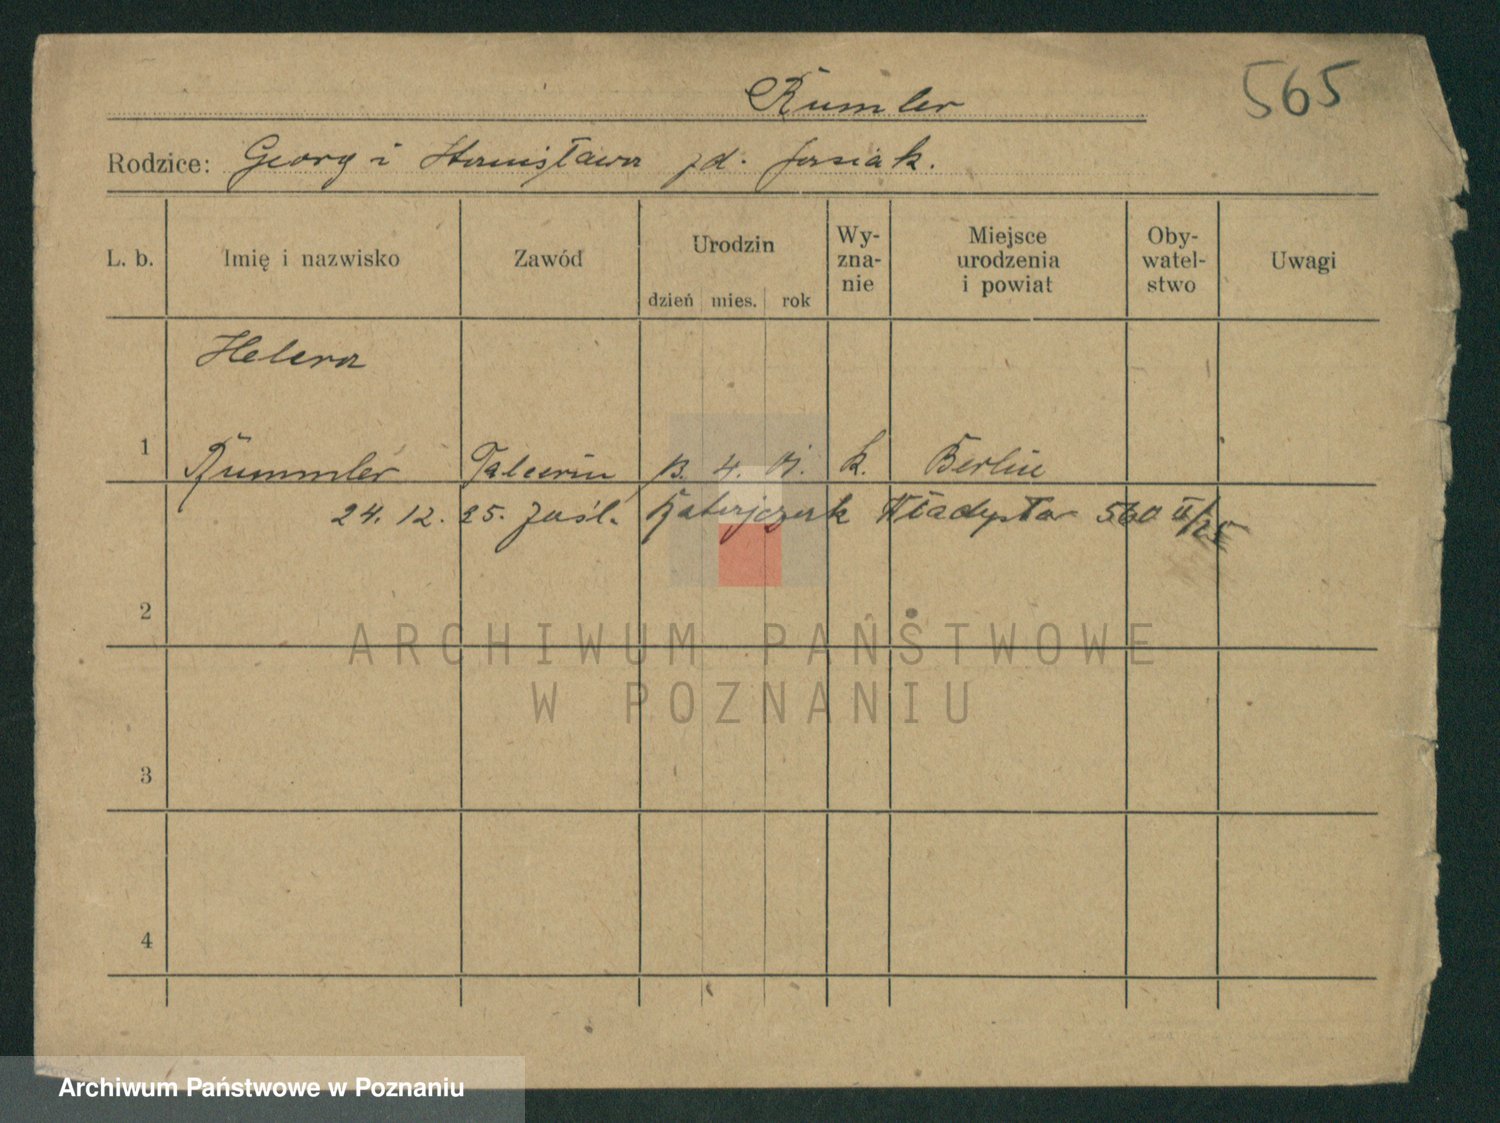 565
Rumler
Rodzice: Georg i Stanisława zd. Jasiak.
L. b. Imię i nazwisko Zawód Urodzin dzień mies. rok Wy-zna-nie Miejsce urodzenia i powiat Oby-watel-stwo Uwagi
Helena
1 Rummler 4. k. Berlin
24. 12. 25. zaśl. Władysław 560 II/25
2
ARCHIWUM PAŃSTWOWE
W POZNANIU
3
4
Archiwum Państwowe w Poznaniu